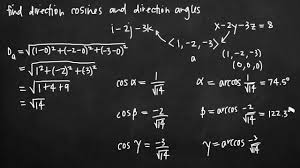 find direction cosines and direction angles
i - 2j - 3k
x - 2y - 3z = 8
⟨1, -2, -3⟩
(1, -2, -3)
(0, 0, 0)
Dₐ = √((1-0)² + (-2-0)² + (-3-0)²)
= √(1² + (-2)² + (-3)²)
= √(1 + 4 + 9)
= √14
cos α = 1/√14
α = arccos 1/√14 = 74.5°
cos β = -2/√14
β = arccos -2/√14 = 122.3°
cos γ = -3/√14
γ = arccos -3/√14